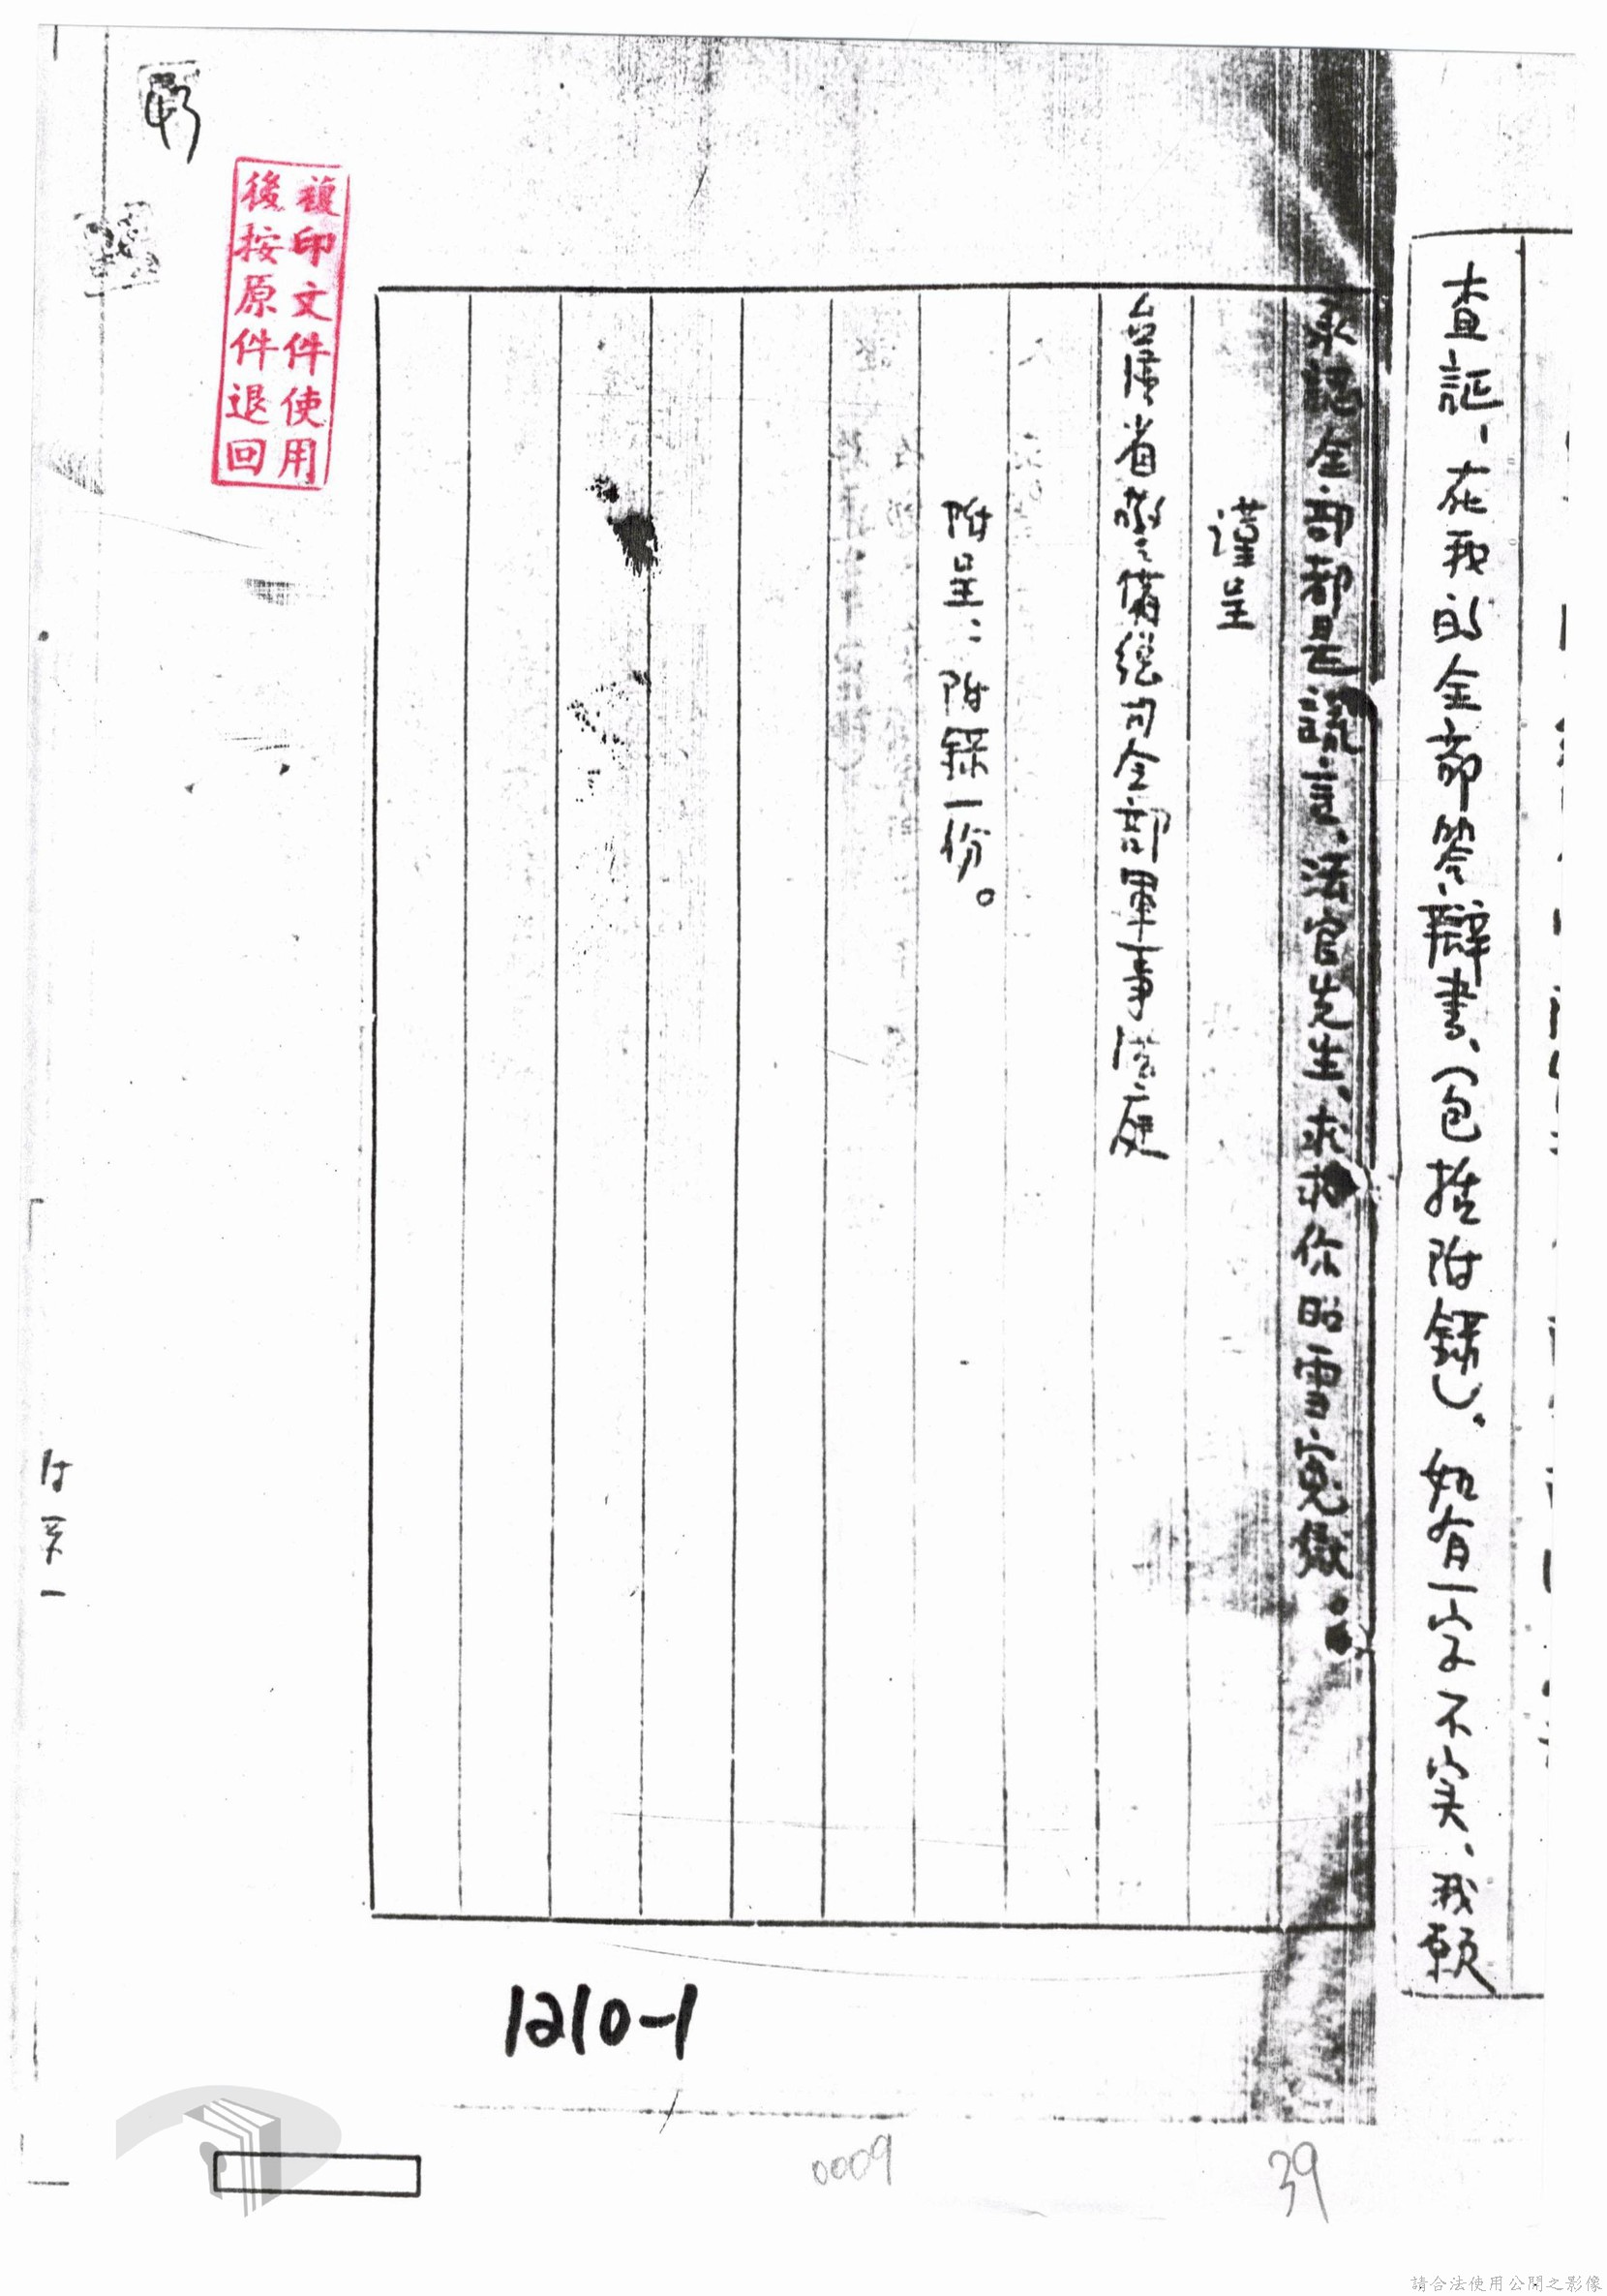 查証、在我的全部答辯書、（包括附錄）、如有一字不实、我願
承認全部都是謊言、法官先生、求求你昭雪冤獄。
謹呈
台湾省警備總司令部軍事法庭
附呈：附錄一份。
複印文件使用
後按原件退回
1210-1
0009
39
請合法使用公開之影像